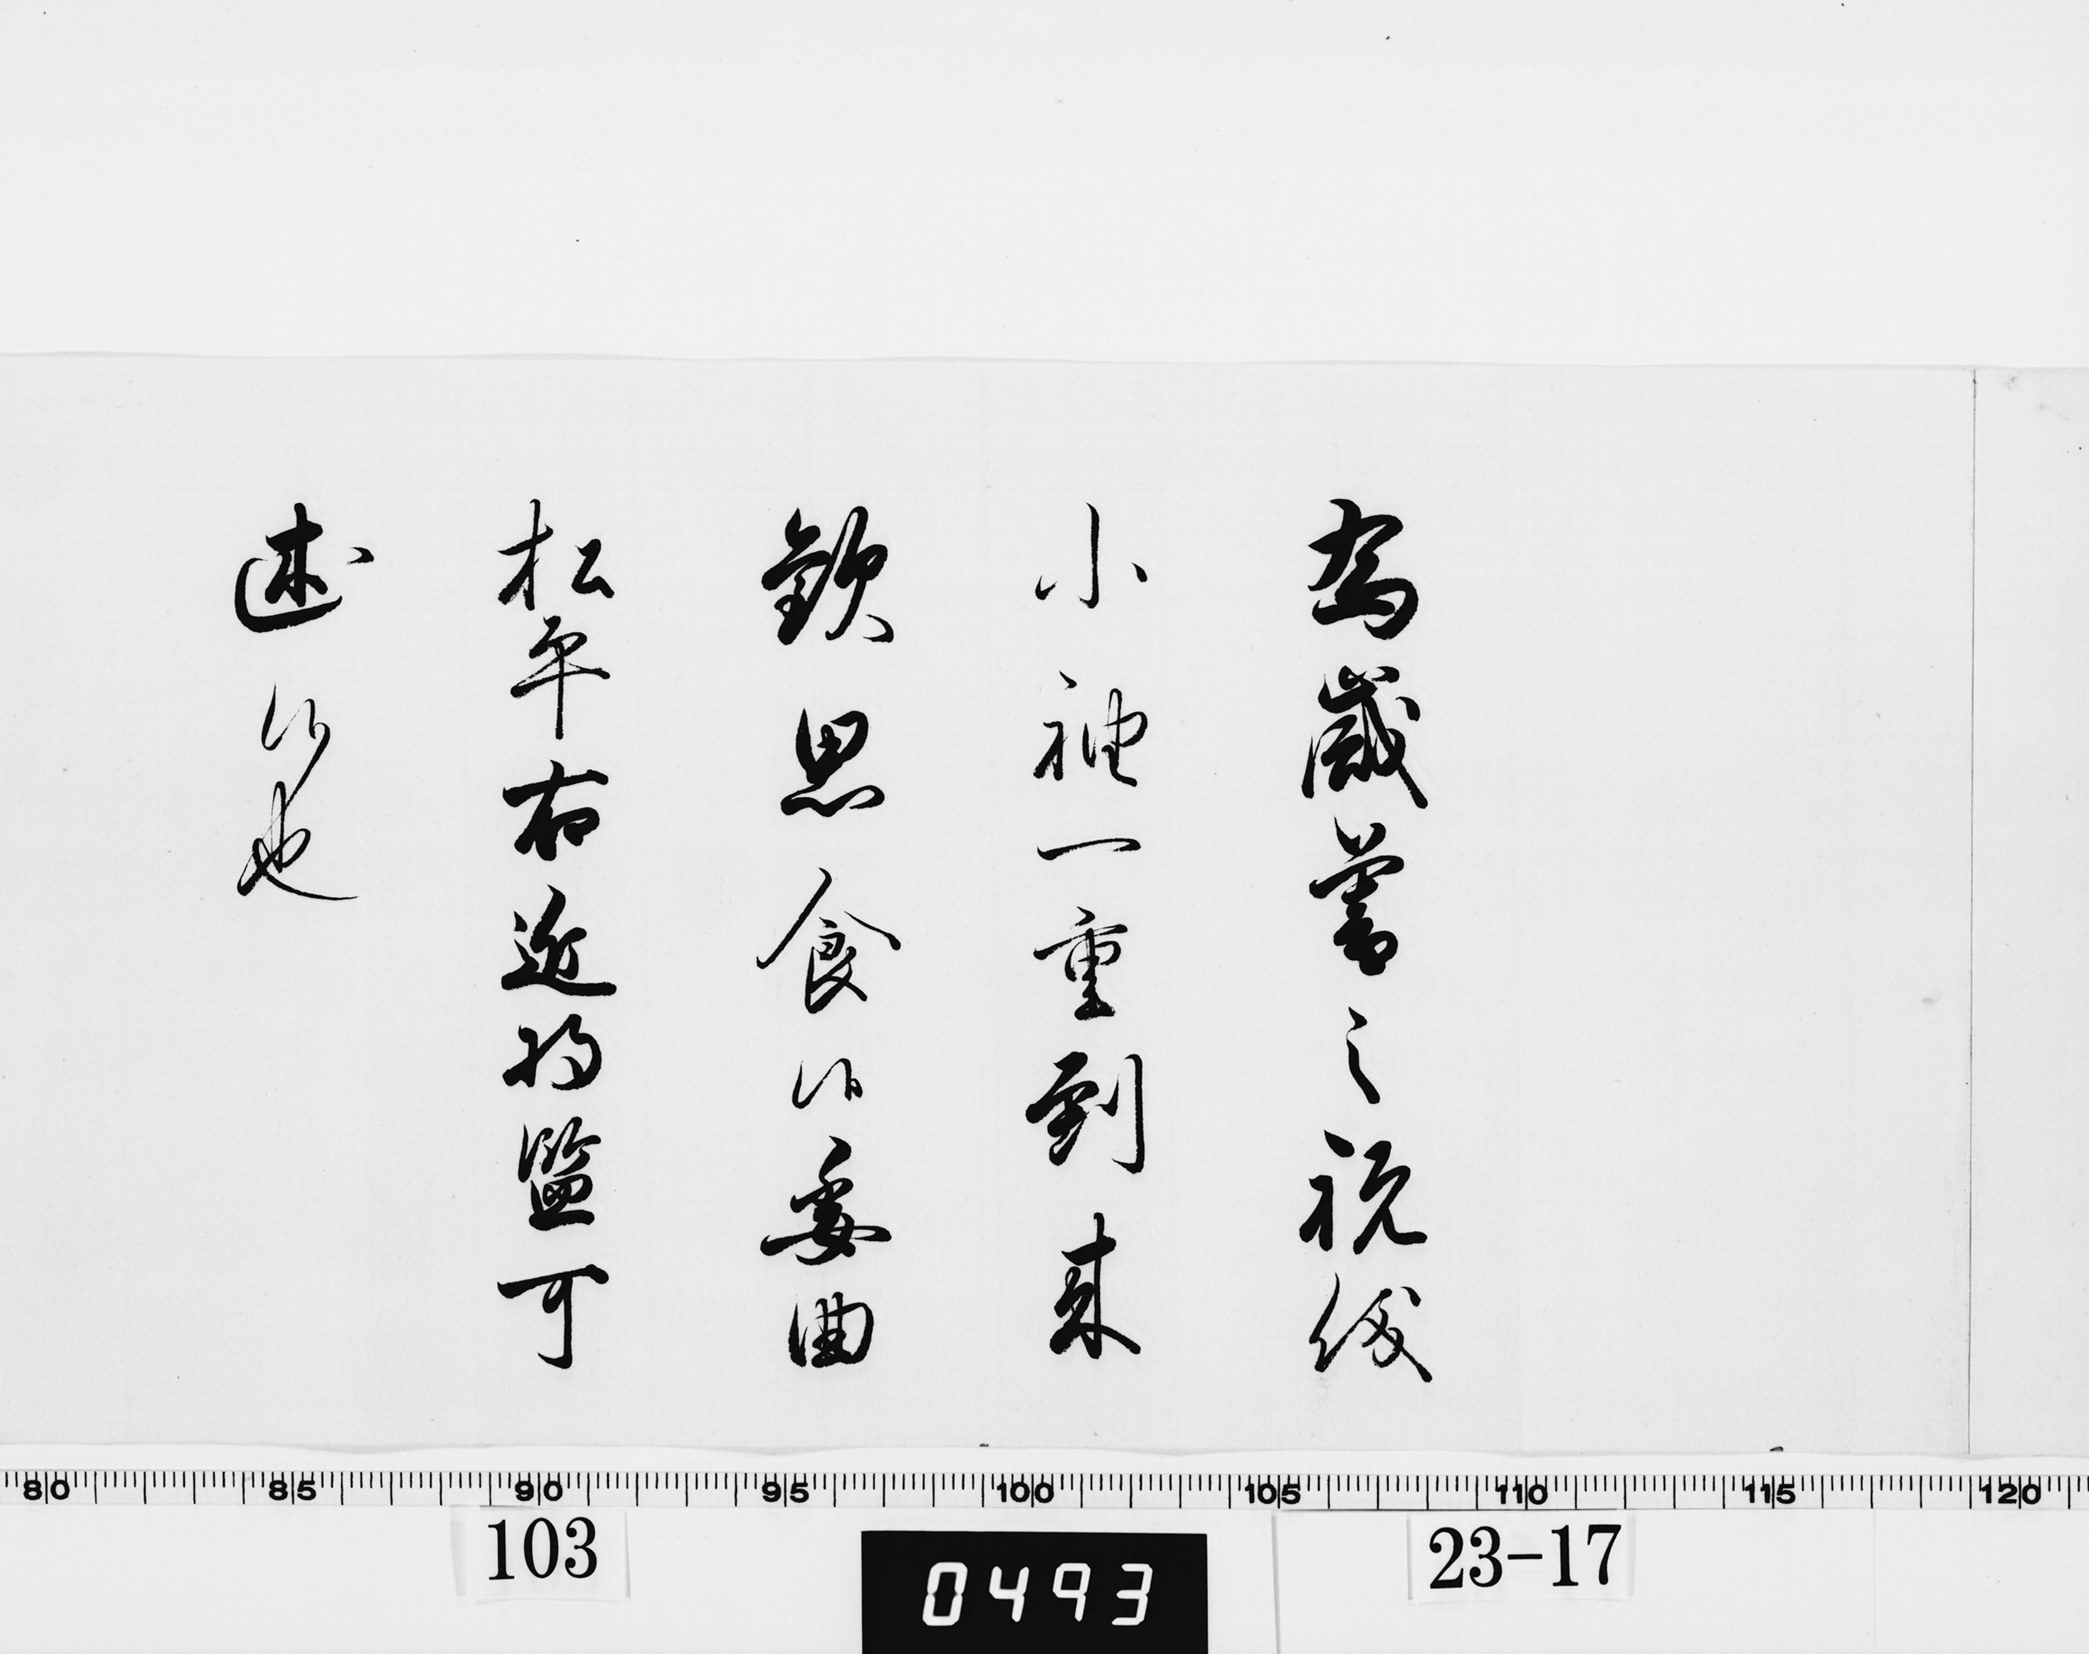 為歳暮之祝儀
小袖一重到来
歓思食候委曲
松平右近将監可
述候也
80 85 90 95 100 105 110 115 120
103
0493
23-17